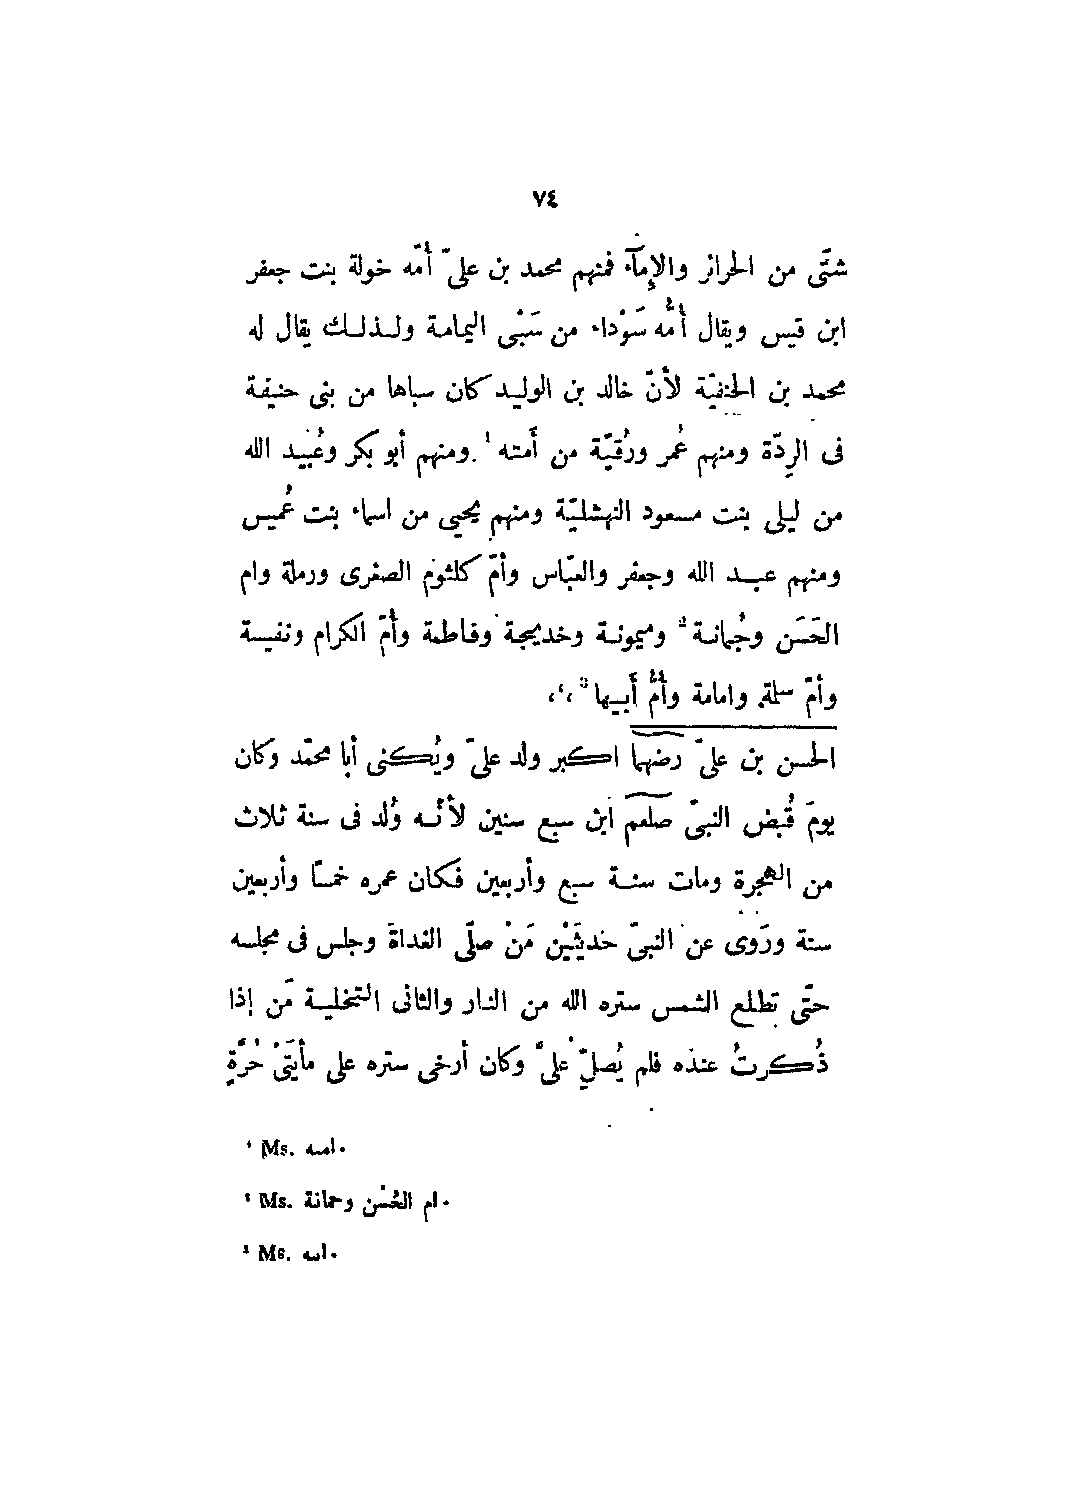 ٧٤
شتَّى من الحرائر والإمآء فمنهم محمد بن علىّ أمّه خولة بنت جعفر
ابن قيس ويقال أمُّه سَوْداء من سَبْى اليمامة ولذلك يقال له
محمد بن الحنفيّة لأنّ خالد بن الوليد كان سباها من بنى حنيفة
فى الرِدّة ومنهم عُمر ورُقيّة من أمته ¹ .ومنهم أبو بكر وعُبيد الله
من ليلى بنت مسعود النهشليّة ومنهم يحيى من اسماء بنت عُميس
ومنهم عبد الله وجعفر والعبّاس وأمّ كلثوم الصغرى ورملة وام
الحَسَن وجُمانة ² وميمونة وخديجة وفاطمة وأمّ الكرام ونفيسة
وأمّ سلمة وامامة وأمُّ أَبيها ³ ،‘،
الحسن بن علىّ رضهما اكبر ولد علىّ ويُكنى أبا محمّد وكان
يومَ قُبض النبىّ صلعم ابن سبع سنين لأنّه وُلد فى سنة ثلاث
من الهجرة ومات سنة سبع وأربعين فكان عمره خمسًا وأربعين
سنة ورَوى عن النبىّ حديثَيْن مَنْ صلّى الغداة وجلس فى مجلسه
حتّى تطلع الشمس ستره الله من النار والثانى التخلية مَن إذا
ذُكرتُ عنده فلم يُصلّ علىَّ وكان أرخى ستره على مأيتَىْ حُرّةٍ
¹ Ms. امىه.
² Ms. ام الحُسْن وحمانة.
³ Ms. اىىه.